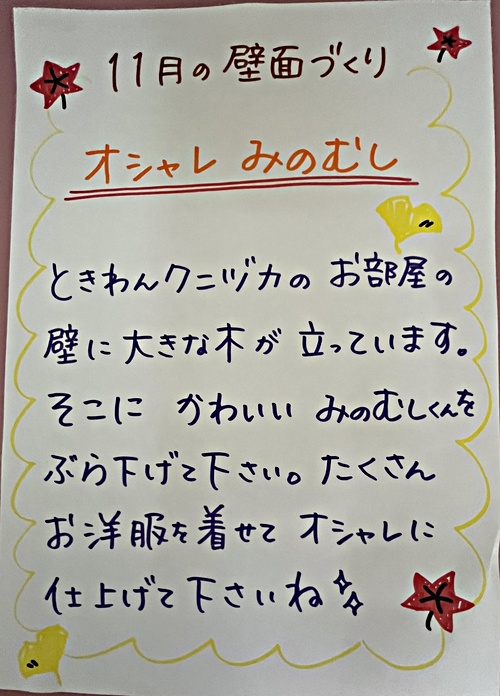 11月の壁面づくり
オシャレ みのむし
ときわんクニヅカの お部屋の
壁に大きな木が 立っています。
そこに かわいい みのむしくんを
ぶら下げて下さい。たくさん
お洋服を着せて オシャレに
仕上げて下さいね